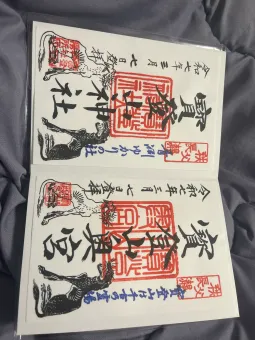 令和七年三月七日参拝
寳登山神社
秩父
長瀞
ゆかりの社
令和七年三月七日参拝
寳登山奥宮
秩父
長瀞
登山は千古の霊場